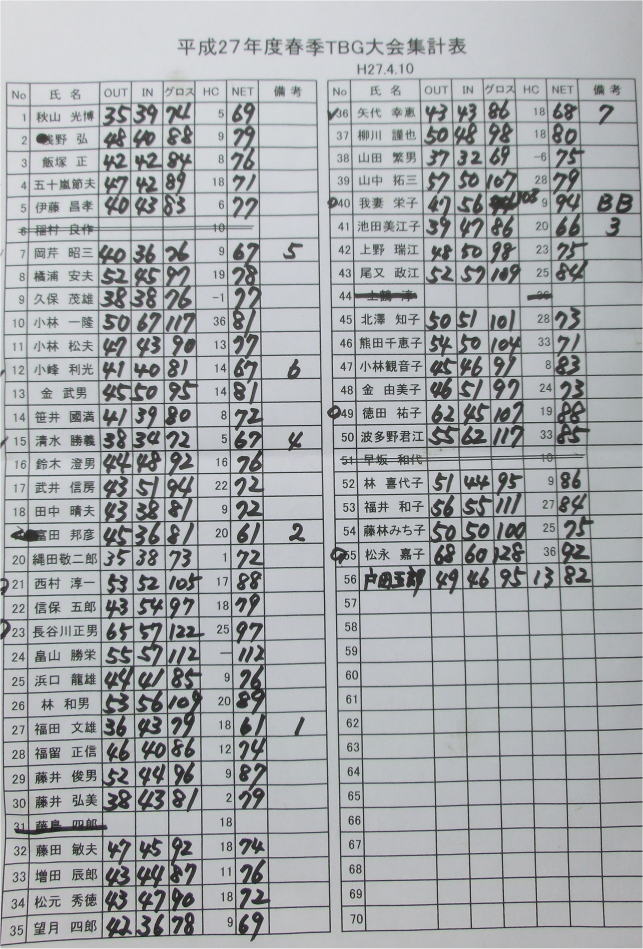 平成27年度春季TBG大会集計表
H27.4.10
No 氏名 OUT IN グロス HC NET 備考
1 秋山 光博 35 39 74 5 69
2 浅野 弘 48 40 88 9 79
3 飯塚 正 42 42 84 8 76
4 五十嵐節夫 47 42 89 18 71
5 伊藤 昌孝 40 43 83 6 77
6 稲村 良作 10
7 岡芹 昭三 40 36 76 9 67 5
8 橘浦 安夫 52 45 97 19 78
9 久保 茂雄 38 38 76 -1 77
10 小林 一隆 50 67 117 36 81
11 小林 松夫 47 43 90 13 77
12 小峰 利光 41 40 81 14 67 6
13 金 武男 45 50 95 14 81
14 笹井 國満 41 39 80 8 72
15 清水 勝義 38 34 72 5 67 4
16 鈴木 澄男 44 48 92 16 76
17 武井 信房 43 51 94 22 72
18 田中 晴夫 43 38 81 9 72
富田 邦彦 45 36 81 20 61 2
20 縄田敬二郎 35 38 73 1 72
21 西村 淳一 53 52 105 17 88
22 信保 五郎 43 54 97 18 79
23 長谷川正男 65 57 122 25 97
24 畠山 勝栄 55 57 112 — 112
25 浜口 龍雄 44 41 85 9 76
26 林 和男 53 56 109 20 89
27 福田 文雄 36 43 79 18 61 1
28 福留 正信 46 40 86 12 74
29 藤井 俊男 52 44 96 9 87
30 藤井 弘美 38 43 81 2 79
31 藤島 四郎 18
32 藤田 敏夫 47 45 92 18 74
33 増田 辰郎 43 44 87 11 76
34 松元 秀徳 43 47 90 18 72
35 望月 四郎 42 36 78 9 69
No 氏名 OUT IN グロス HC NET 備考
36 矢代 幸恵 43 43 86 18 68 7
37 柳川 謹也 50 48 98 18 80
38 山田 繁男 37 32 69 -6 75
39 山中 拓三 57 50 107 28 79
40 我妻 栄子 47 56 103 9 94 BB
41 池田美江子 39 47 86 20 66 3
42 上野 瑞江 48 50 98 23 75
43 尾又 政江 52 57 109 25 84
44
45 北澤 知子 50 51 101 28 73
46 熊田千恵子 54 50 104 33 71
47 小林観音子 45 46 91 8 83
48 金 由美子 46 51 97 24 73
49 徳田 祐子 62 45 107 19 88
50 波多野君江 55 62 117 33 85
51 早坂 和代 10
52 林 喜代子 51 44 95 9 86
53 福井 和子 56 55 111 27 84
54 藤林みち子 50 50 100 25 75
55 松永 嘉子 68 60 128 36 92
56 戸田 49 46 95 13 82
57
58
59
60
61
62
63
64
65
66
67
68
69
70